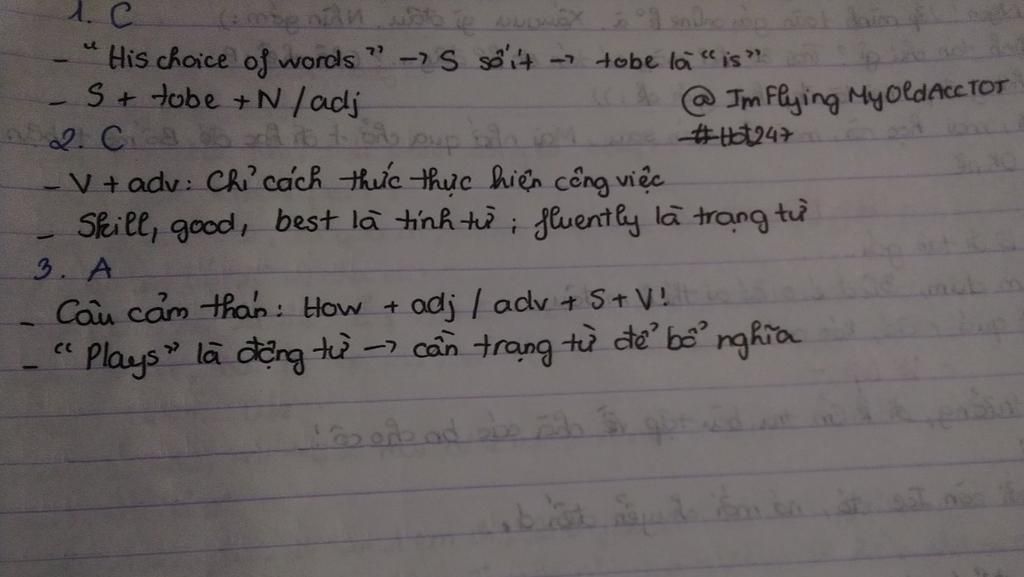 1. C
- "His choice of words" → S số ít → tobe là "is"
- S + tobe + N / adj
@ ImFlyingMyOldAccTOT
#Hot247
2. C
- V + adv: Chỉ cách thức thực hiện công việc
- Skill, good, best là tính từ; fluently là trạng từ
3. A
- Câu cảm thán: How + adj / adv + S + V!
- "Plays" là động từ → cần trạng từ để bổ nghĩa